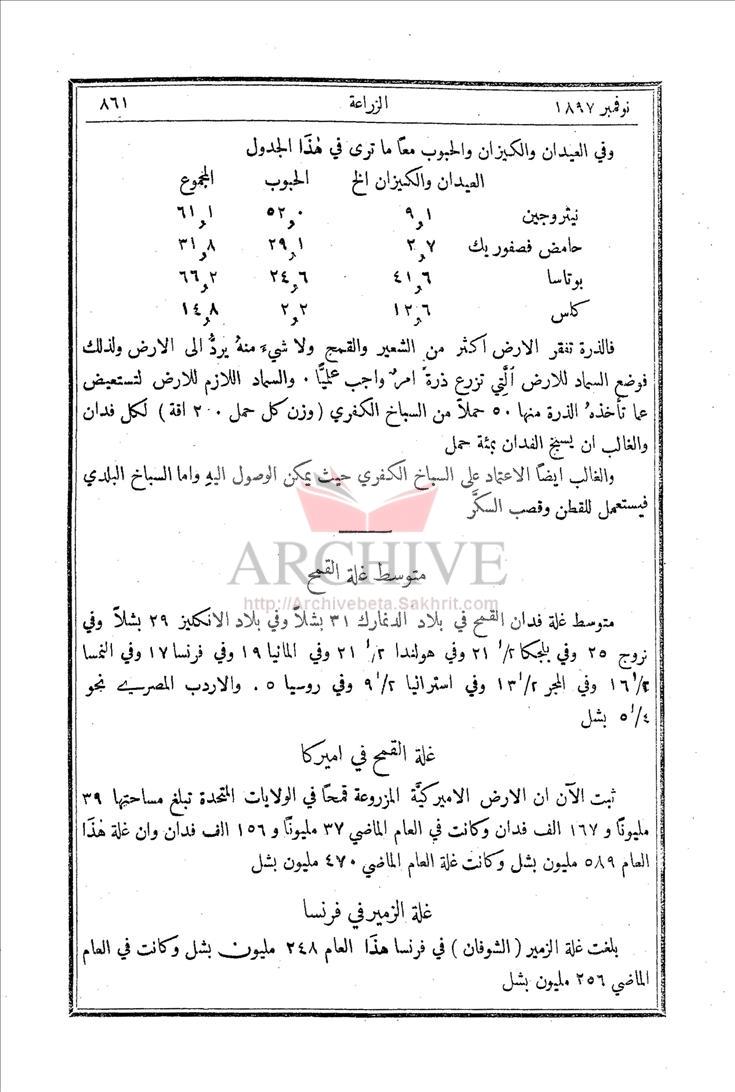 نوفمبر ١٨٩٧ الزراعة ٨٦١
وفي العيدان والكيزان والحبوب معًا ما ترى في هٰذَا الجدول
العيدان والكيزان الخ الحبوب المجموع
نيثروجين ٩,١ ٥٢,٠ ٦١,١
حامض فصفوريك ٢,٧ ٢٩,١ ٣١,٨
بوتاسا ٤١,٦ ٢٤,٦ ٦٦,٢
كلس ١٢,٦ ٢,٢ ١٤,٨
فالذرة تفقر الارض اكثر من الشعير والقمح ولا شيءَ منهُ يردُّ الى الارض ولذلك
فوضع السماد للارض الَّتِي تزرع ذرةً امرٌ واجب عليًّا . والسماد اللازم للارض لتستعيض
عما تأخذهُ الذرة منها ٥٠ حملاً من السباخ الكفري ( وزن كل حمل ٢٠٠ اقة ) لكل فدان
والغالب ان يسبخ الفدان بمئة حمل
والغالب ايضًا الاعتماد على السباخ الكفري حيث يمكن الوصول اليهِ واما السباخ البلدي
فيستعمل للقطن وقصب السكَّر
ARCHIVE
متوسط غلة القمح
http://Archivebeta.Sakhrit.com
متوسط غلة فدان القمح في بلاد الدنمارك ٣١ بشلاً وفي بلاد الانكليز ٢٩ بشلاً وفي
نروج ٢٥ وفي بلجكا ٢/١ ٢١ وفي هولندا ٢/١ ٢١ وفي المانيا ١٩ وفي فرنسا ١٧ وفي النمسا
٢/١ ١٦ وفي المجر ٢/١ ١٣ وفي استراليا ٢/١ ٩ وفي روسيا ٥ . والاردب المصري نحو
٤/١ ٥ بشل
غلة القمح في اميركا
ثبت الآن ان الارض الاميركيَّة المزروعة قمحًا في الولايات المتحدة تبلغ مساحتها ٣٩
مليونًا و ١٦٧ الف فدان وكانت في العام الماضي ٣٧ مليونًا و ١٥٦ الف فدان وان غلة هٰذَا
العام ٥٨٩ مليون بشل وكانت غلة العام الماضي ٤٧٠ مليون بشل
غلة الزمير في فرنسا
بلغت غلة الزمير ( الشوفان ) في فرنسا هذَا العام ٢٤٨ مليون بشل وكانت في العام
الماضي ٢٥٦ مليون بشل